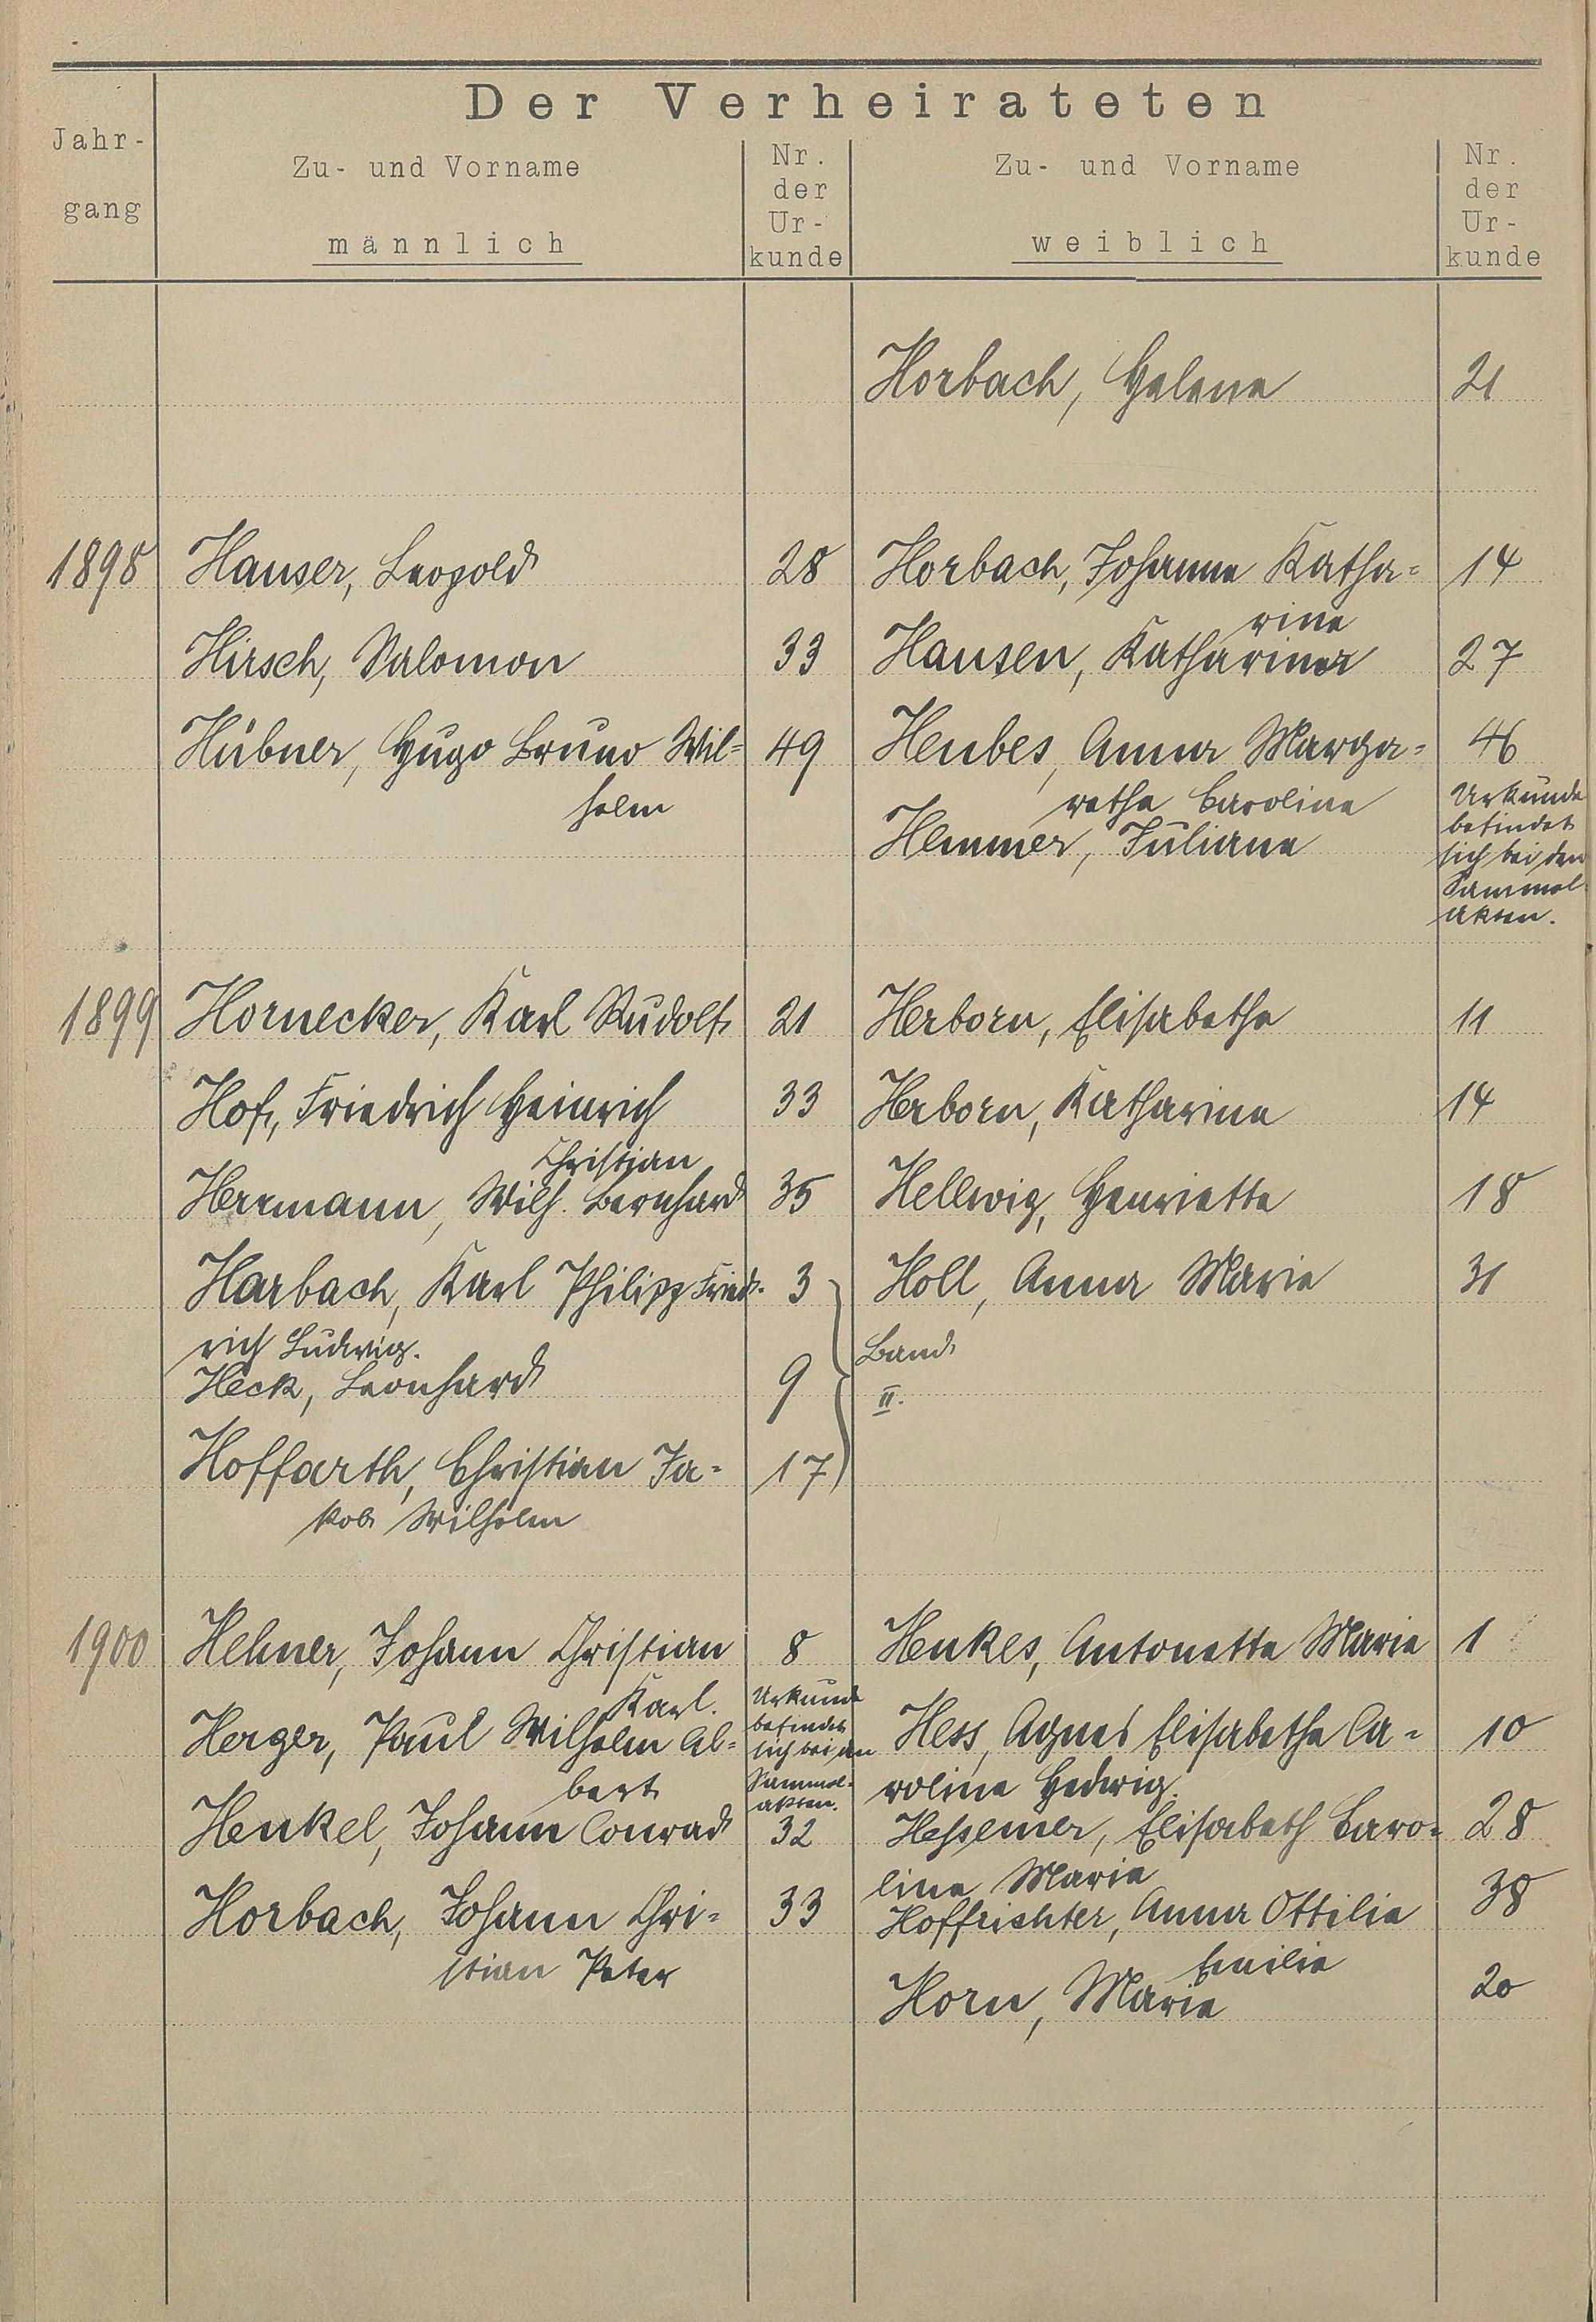 Der Verheirateten
Jahr-
gang
Zu- und Vorname
männlich
Nr.
der
Ur-
kunde
Zu- und Vorname
weiblich
Nr.
der
Ur-
kunde
Horbach, Helene 21
1898 Hauser, Leopold 28 Horbach, Johanna Katha= 14
rine
Hirsch, Salomon 33 Hansen, Katharina 27
Hübner, Hugo Bruno Wil= 49 Heubes, Anna Marga= 46
helm
retha Caroline
Hemmer, Juliane
Urkunde
befindet
sich bei den
Sammel
akten.
1899 Hornecker, Karl Rudolf 21 Herborn, Elisabetha 11
Hof, Friedrich Heinrich 33 Herborn, Katharina 14
Christian
Herrmann, Wilh. Bernhard 35 Hellwig, Henriette 18
Harbach, Karl Philipp Fried- 3 Holl, Anna Maria 31
rich Ludwig.
Heck, Leonhard 9
Band
II.
Hoffarth, Christian Ja= 17
kob Wilhelm
1900 Hehner, Johann Christian 8 Henkes, Antonetta Maria 1
Karl.
Herger, Paul Wilhelm Al=
bert
Urkunde
befindet
sich bei den
Sammel=
akten.
Hess, Agnes Elisabetha Ca= 10
roline Hedwig.
Henkel, Johann Conrad 32 Hessemer, Elisabeth Caro= 28
line Maria
Horbach, Johann Chri= 33 Hoffrichter, Anna Ottilia 38
stian Peter
Emilie
Horn, Maria 20